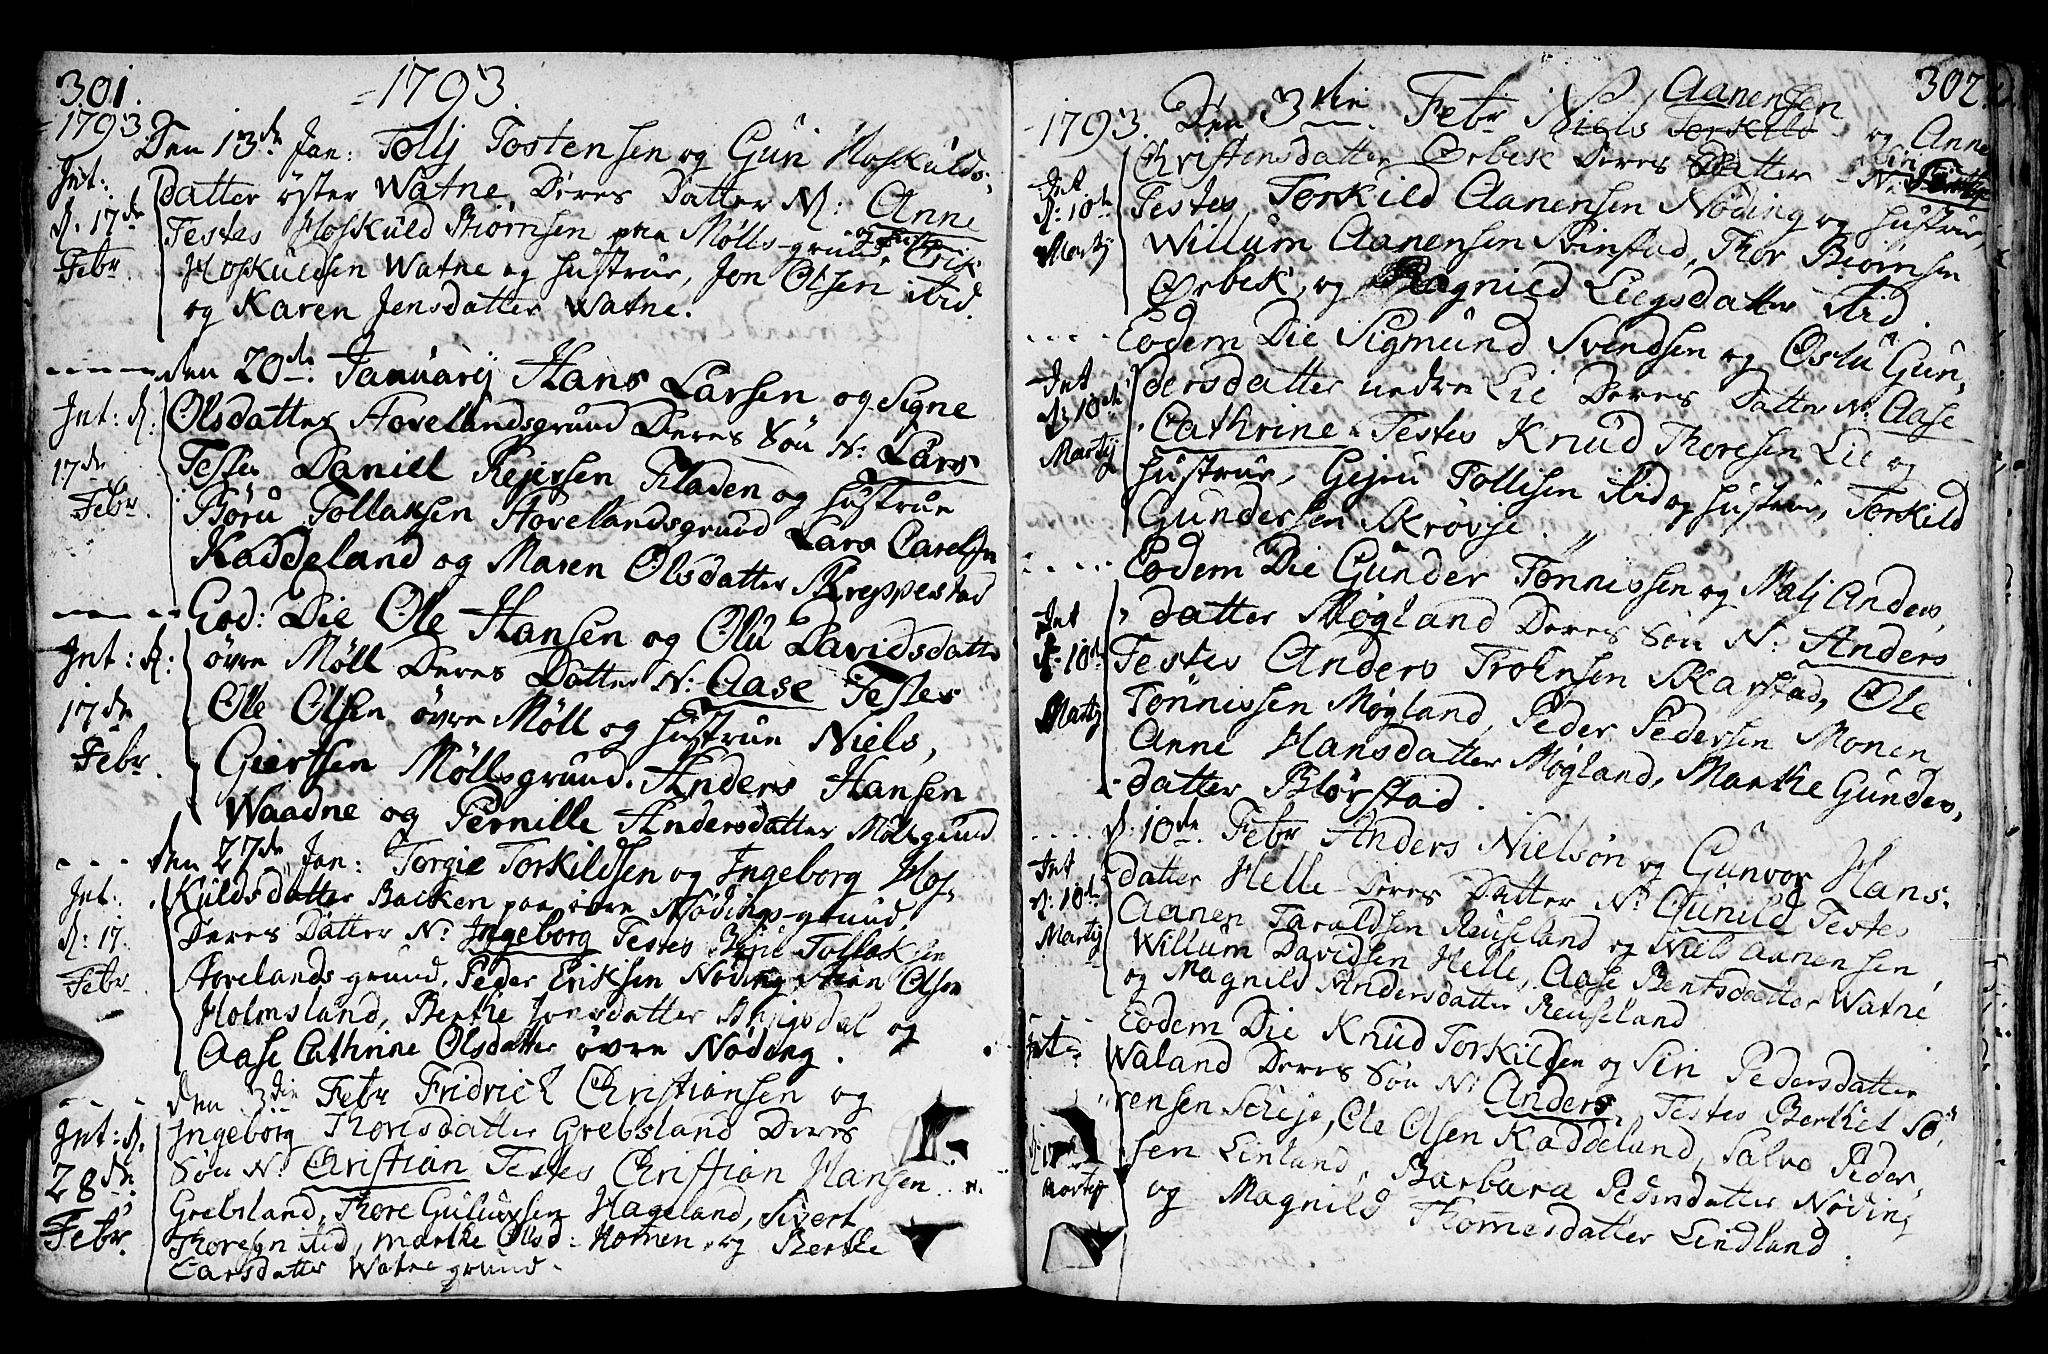 301.
1793.
1793
Den 13de Jan: Tollj Tostensen og Guri Hoskulds-
Int:
datter öster Watne Deres Datter N: Anne
d. 17de
Testes Hoskuld Biörnsen paa Mölls-grund, Erik
Febr
Hoskuldsen Watne og hustrue, Jon Olsen ibid.
og Karen Jensdatter Watne.
den 20de Januarij Hans Larsen og Signe
Int: d:
Olsdatter Hovelandsgrund Deres Sön N: Lars
17de
Testes Daniel Rejersen Fladen og hustrue
Febr.
Böru Tollaksen Hovelandsgrund Lars Carelsen
Kaddeland og Maren Olsdatter Skreppestad
Eod: Die Ole Hansen og Olu Davidsdatter
Int: d:
övre Möll Deres Datter N: Aase Testes
17de
Ole Olsen övre Möll og hustrue Niels
Febr.
Giertsen Möllsgrund. Anders Hansen
Waadne og Pernille Andersdatter Möllsgrund
den 27de Jan: Torgie Torkildsen og Ingeborg Hos-
Int:
kuldsdatter Backen paa övre Nödings-grund,
d: 17.
Deres Datter N: Ingeborg Testes Tollaksen
Febr
Hovelandsgrund, Peder Eriksen Nöding, Olsen
Holmsland, Berthe Jonsdatter og
Aase Cathrine Olsdatter övre Nöding.
den 3die Febr Fridrich Christiansen og
Int: d.
Ingeborg Thoresdatter Grebsland Deres
28de
Sön N: Christian Testes Christian Hansen
Febr.
Grebsland, Thore Gulufsen Hageland, Sivert
Thoresen ibid, Marthe Olsd: Homen og Berthe
Larsdatter Watne grund.
302.
1793.
Den 3die Febr Niels Aanensen Torkild og Anne
Int
Christensdatter Örbek Deres Datter N:
d: 10de
Testes Torkild Aanensen Nöding og hustrue,
Martij
Willum Aanensen Svinstad, Thor Biörnsen
Örbek, og Ragnild Liegsdatter ibid.
Eodem Die Sigmund Svendsen og Oslu Gun-
Int
dersdatter nedre Lie Deres Datter N: Aase
d: 10de
Cathrine Testes Knud Thoresen Lie og
Martij
hustrue, Gejru Tollisen ibid og hustrue, Torkild
Gundersen Skrövje.
Eodem Die Gunder Tönnissen og Malj Anders-
Int
datter Mögland Deres Sön N: Anders
d: 10de
Testes Anders Trohnsen Skarstad, Ole
Martij
Tönnissen Mögland, Peder Pedersen Monen
Anne Hansdatter Mögland, Marthe Gunders-
datter Blörstad.
d: 10de Febr Anders Nielsön og Gunvor Hans-
Int
datter Helle Deres Datter N: Gunild Testes
d: 10de
Aanen Taraldsen Reuseland og Niels Aanensen
Martij
Willum Davidsen Helle, Aase Bentsdatter Watne
og Magnild Andersdatter Reuseland
Eodem Die Knud Torkildsen og Siri Pedersdatter
Int
Waland Deres Sön N: Anders, Testes Berthel Sö-
rensen Scheje, Ole Olsen Kaddeland, Salve Peder-
sen Linland, Barbara Pedersdatter Nöding
Martij
og Magnild Thomesdatter Lindland.